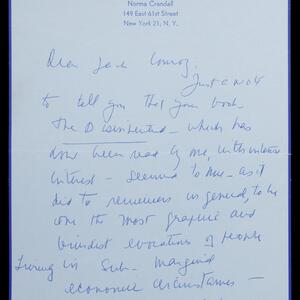 Norma Crandall
149 East 61st Street
New York 21, N.Y.
Dear Jack Conroy:
Just a note
to tell you that your book
The Disinherited - which has
now been read by me, with intense
interest - seemed to me - as it
did to reviewers in general, to be
one of the most graphic and
vividest evocations of people
living in sub-marginal
economic circumstances -